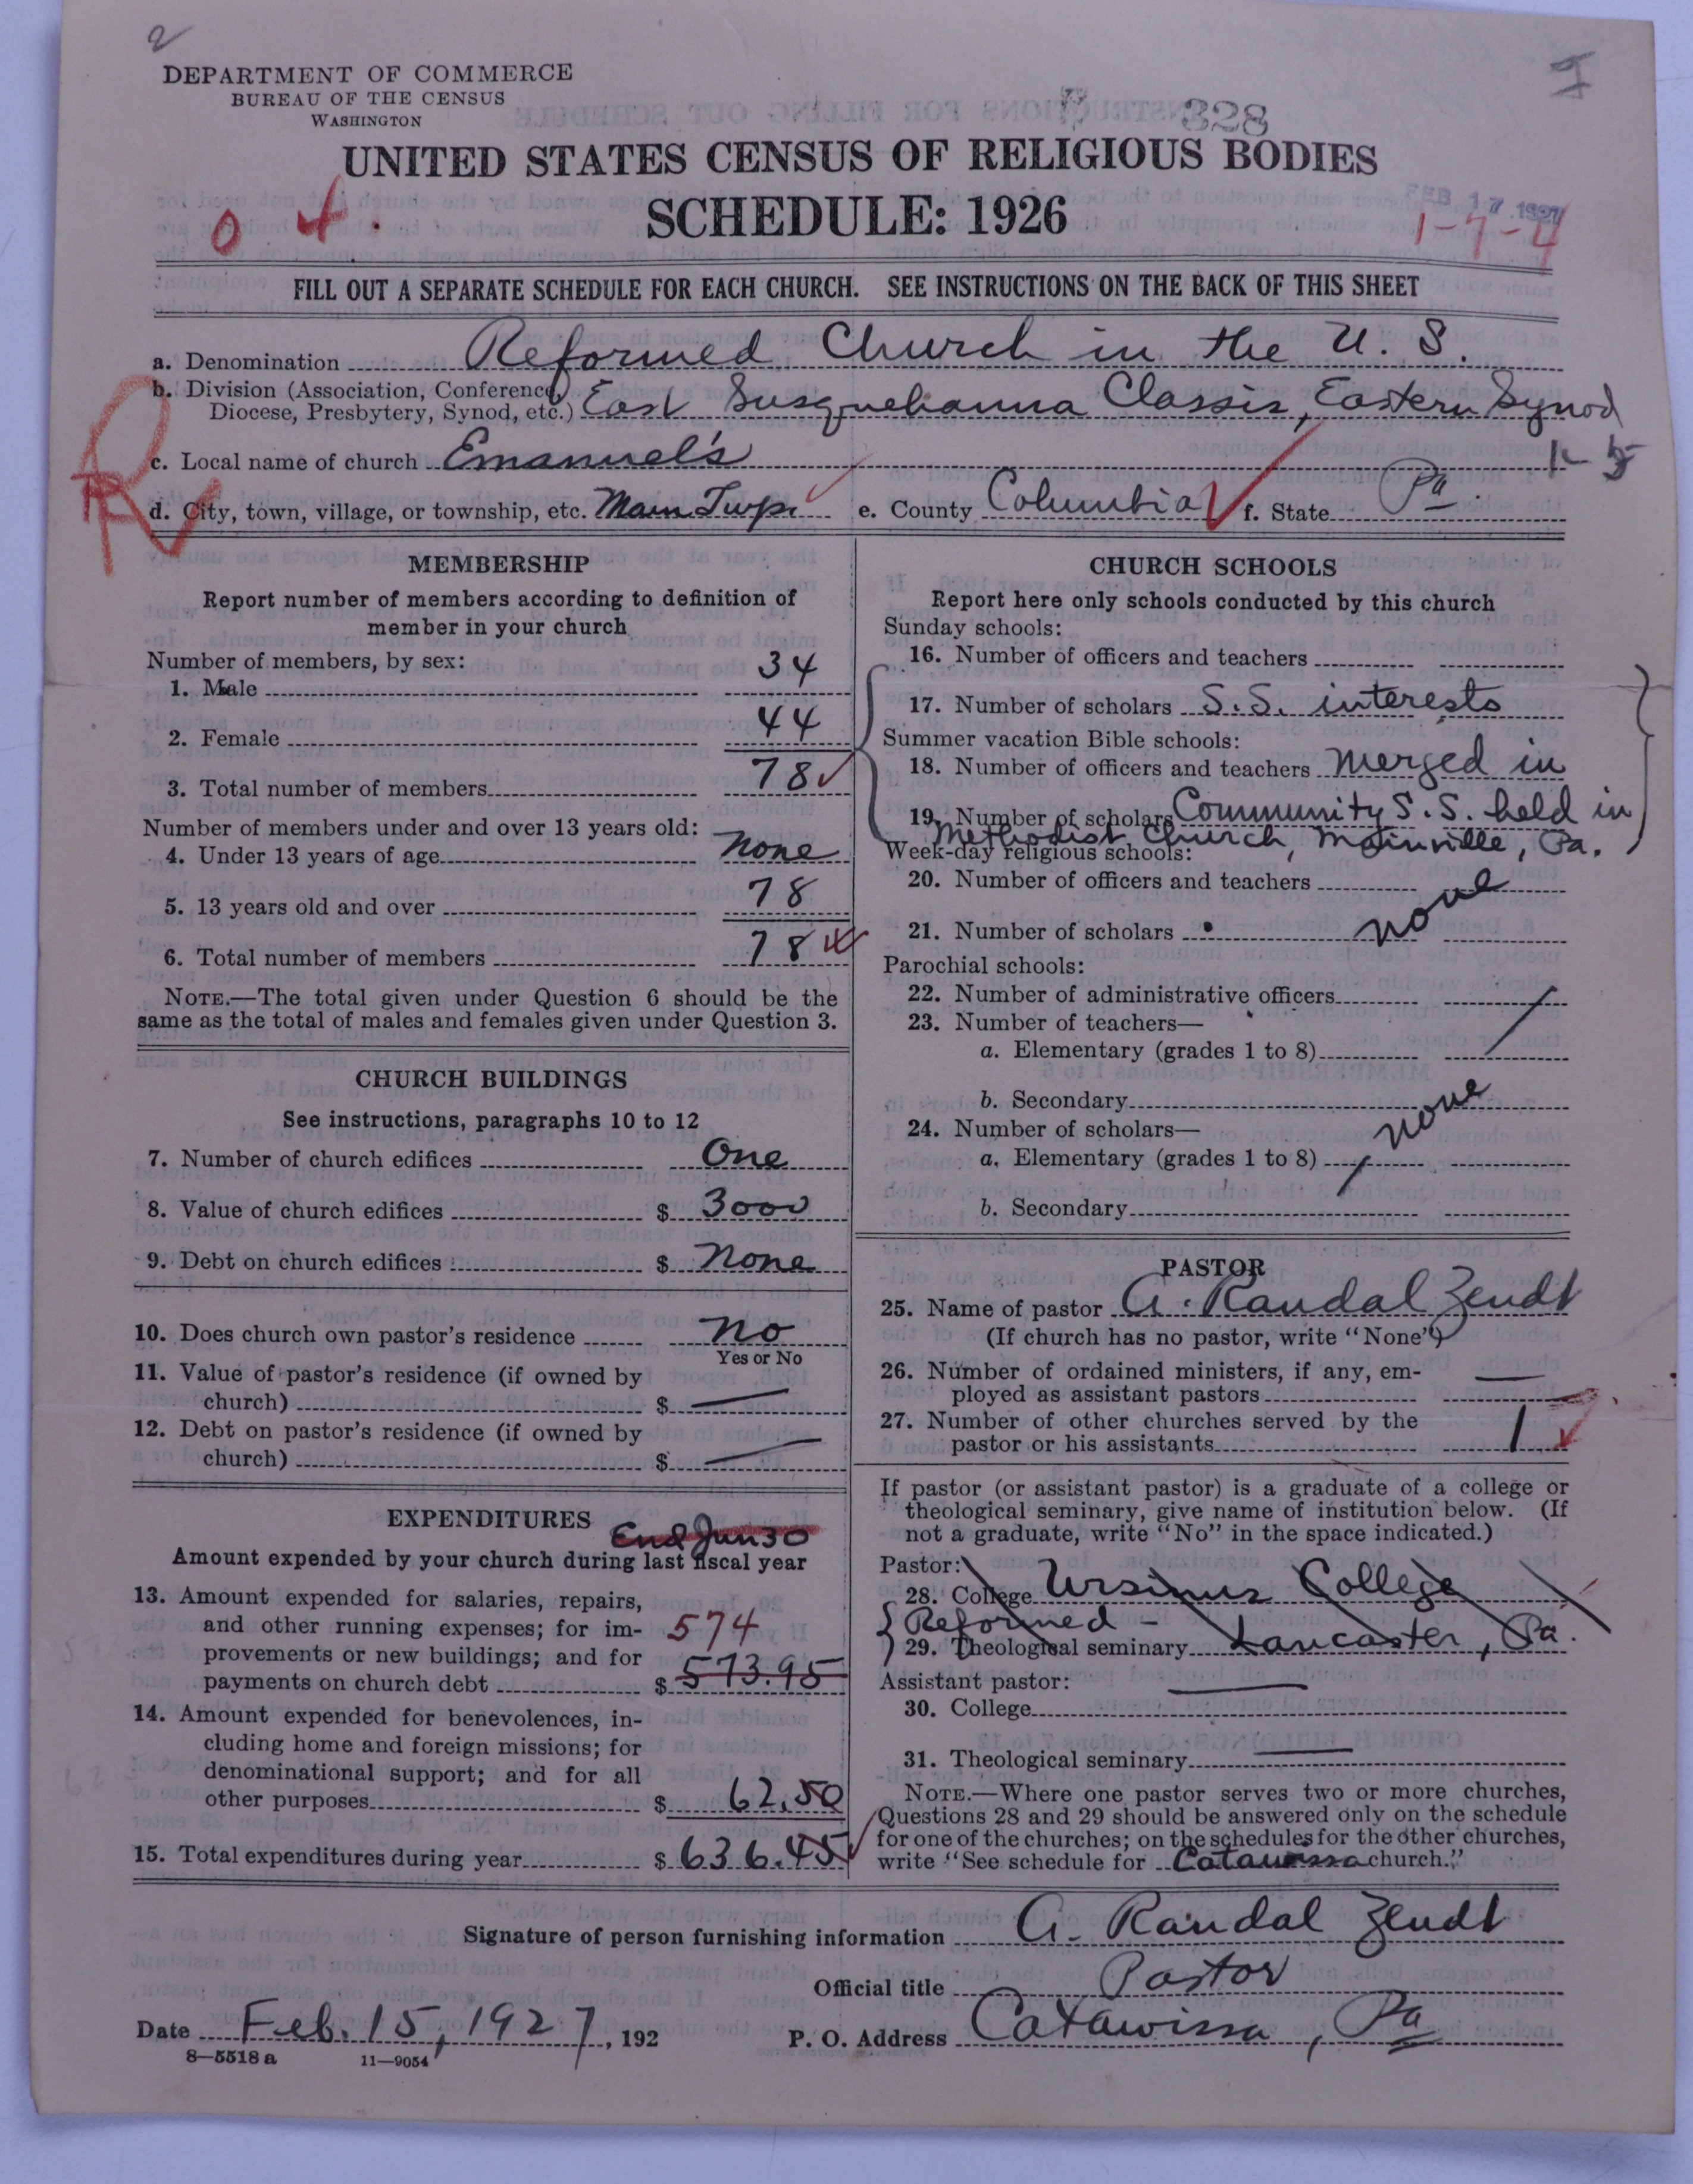 2
DEPARTMENT OF COMMERCE
BUREAU OF THE CENSUS
WASHINGTON
328
UNITED STATES CENSUS OF RELIGIOUS BODIES
SCHEDULE: 1926
0 4.
FEB 17 1927
1-7-4
FILL OUT A SEPARATE SCHEDULE FOR EACH CHURCH. SEE INSTRUCTIONS ON THE BACK OF THIS SHEET
a. Denomination Reformed Church in the U. S.
b. Division (Association, Conference,
Diocese, Presbytery, Synod, etc.) East Susquehanna Classis, Eastern Synod
c. Local name of church Emanuel's
d. City, town, village, or township, etc. Main Twp. e. County Columbia f. State Pa.
MEMBERSHIP
Report number of members according to definition of
member in your church
Number of members, by sex:
1. Male 34
2. Female 44
3. Total number of members 78
Number of members under and over 13 years old:
4. Under 13 years of age none
5. 13 years old and over 78
6. Total number of members 78
NOTE.—The total given under Question 6 should be the
same as the total of males and females given under Question 3.
CHURCH BUILDINGS
See instructions, paragraphs 10 to 12
7. Number of church edifices One
8. Value of church edifices $ 3000
9. Debt on church edifices $ None
10. Does church own pastor's residence No
Yes or No
11. Value of pastor's residence (if owned by
church) $ —
12. Debt on pastor's residence (if owned by
church) $ —
EXPENDITURES
End Jun 30
Amount expended by your church during last fiscal year
13. Amount expended for salaries, repairs,
and other running expenses; for im-
574
provements or new buildings; and for
payments on church debt $ 573.95
14. Amount expended for benevolences, in-
cluding home and foreign missions; for
denominational support; and for all
other purposes $ 62.50
15. Total expenditures during year $ 636.45
CHURCH SCHOOLS
Report here only schools conducted by this church
Sunday schools:
16. Number of officers and teachers
17. Number of scholars S.S. interests
Summer vacation Bible schools:
18. Number of officers and teachers merged in
19. Number of scholars Community S.S. held in
Methodist Church, Mainville, Pa.
Week-day religious schools:
20. Number of officers and teachers
none
21. Number of scholars
Parochial schools:
22. Number of administrative officers
23. Number of teachers—
a. Elementary (grades 1 to 8)
b. Secondary
none
24. Number of scholars—
a. Elementary (grades 1 to 8)
b. Secondary
PASTOR
25. Name of pastor A. Randal Zendt
(If church has no pastor, write "None")
26. Number of ordained ministers, if any, em-
ployed as assistant pastors —
27. Number of other churches served by the
pastor or his assistants 1
If pastor (or assistant pastor) is a graduate of a college or
theological seminary, give name of institution below. (If
not a graduate, write "No" in the space indicated.)
Pastor:
28. College Ursinus College
Reformed -
29. Theological seminary Lancaster, Pa.
Assistant pastor:
30. College —
31. Theological seminary —
NOTE.—Where one pastor serves two or more churches,
Questions 28 and 29 should be answered only on the schedule
for one of the churches; on the schedules for the other churches,
write "See schedule for Catawissa church."
Signature of person furnishing information A. Randal Zendt
Official title Pastor
Date Feb. 15, 1927, 192 P. O. Address Catawissa, Pa
8—5518 a 11—9054